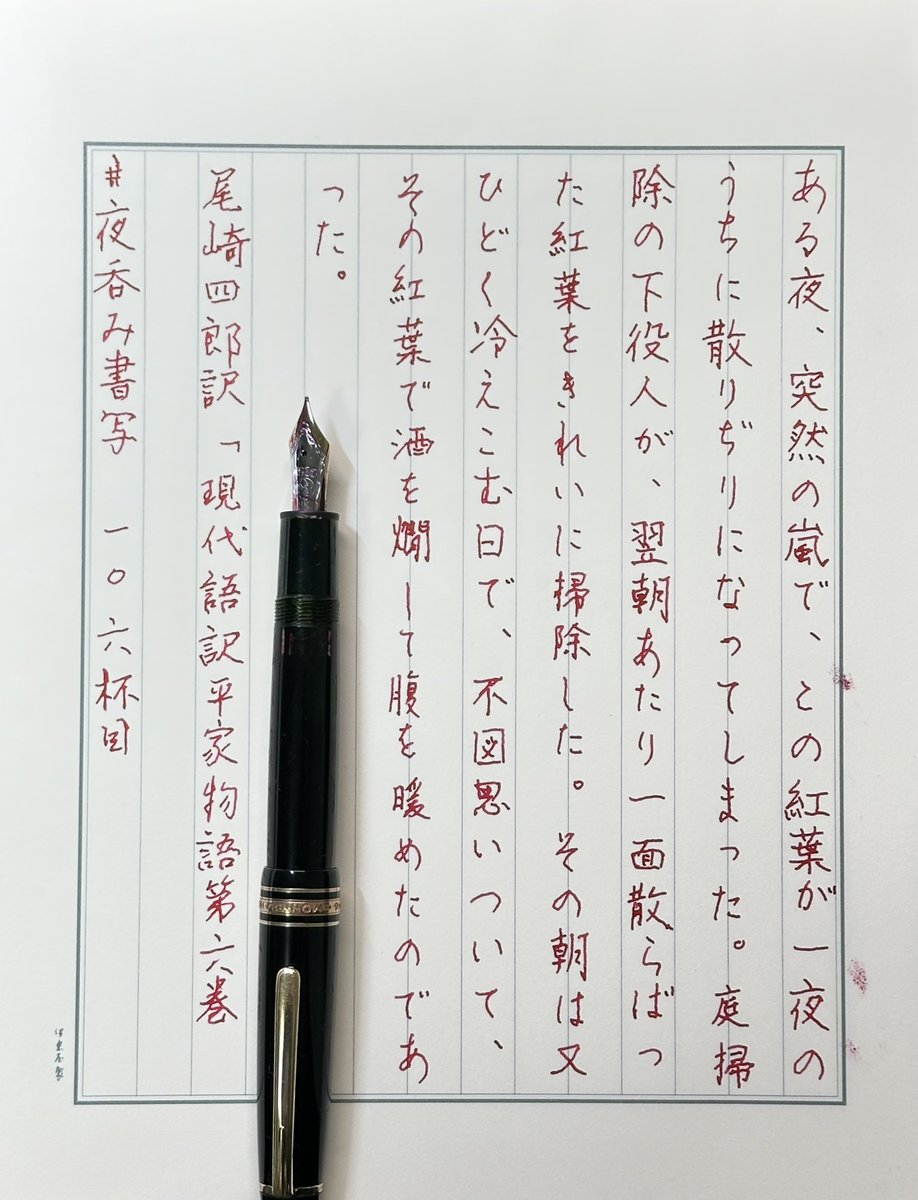 ある夜、突然の嵐で、この紅葉が一夜の
うちに散りぢりになってしまった。庭掃
除の下役人が、翌朝あたり一面散らばっ
た紅葉をきれいに掃除した。その朝は又
ひどく冷えこむ日で、不図思いついて、
その紅葉で酒を燗して腹を暖めたのであ
った。
尾崎四郎訳「現代語訳平家物語第六巻
#夜呑み書写 一〇六杯目
伊東屋製